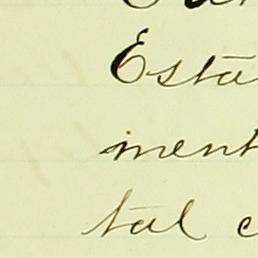 Esta
ment
tal c